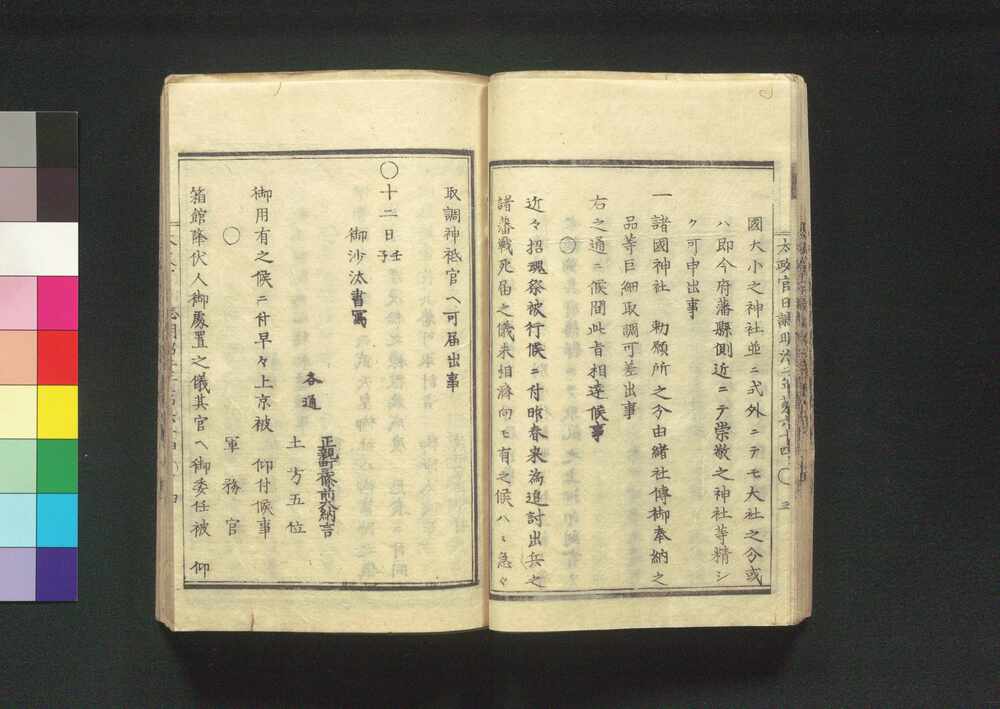 國大小之神社並ニ式外ニテモ大社之分或
ハ即今府藩縣側近ニテ崇敬之神社等精シ
ク可申出事
一諸國神社 勅願所之分由緒社傳御奉納之
品等巨細取調可差出事
右之通ニ候間此旨相達候事
○
近々招魂祭被行候ニ付昨春來為追討出兵之
諸藩戰死届之儀未相濟向モ有之候ハヽ急々
取調神祇官ヘ可届出事
○十二日壬子
御沙汰書寫
各通
正親町三條前大納言
土方五位
御用有之候ニ付早々上京被 仰付候事
○
軍務官
箱館降伏人御處置之儀其官ヘ御委任被 仰